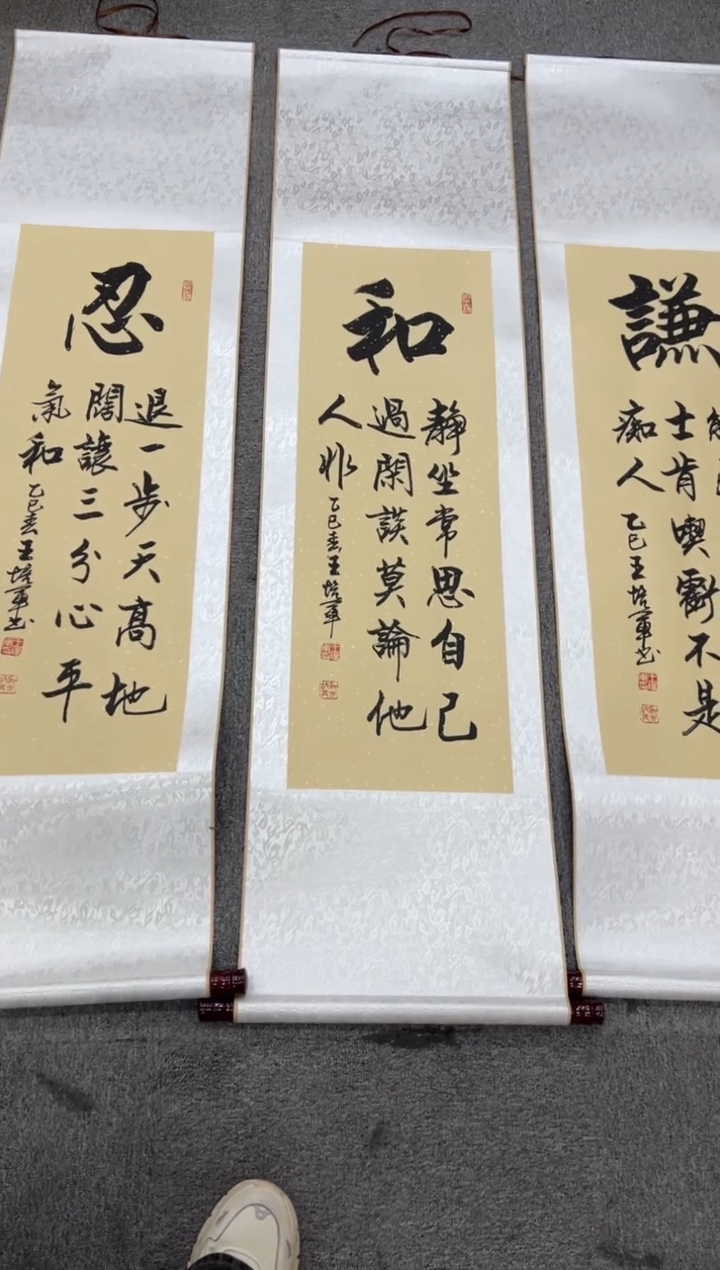 謙
士肯喫虧不是
痴人 乙巳王培軍书
和
静坐常思自己
過閑談莫論他
人非 乙巳春王培軍
忍
退一步天高地
闊讓三分心平
氣和 乙巳春王培軍书